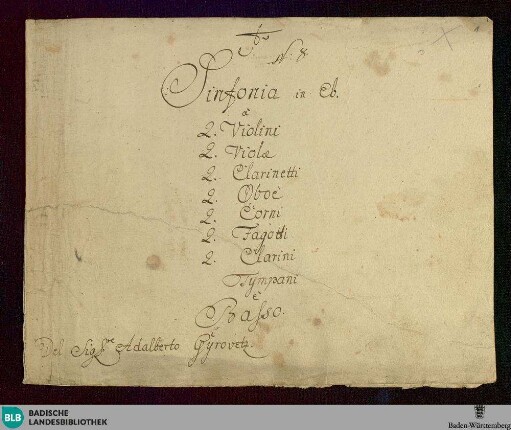 N. 8.
Sinfonia in Eb.
a
2. Violini
2. Viole
2. Clarinetti
2. Oboè
2. Corni
2. Fagotti
2. Clarini
Tympani
è
Basso.
Del Sig.re Adalberto Gyrovetz.
BLB BADISCHE
LANDESBIBLIOTHEK
Baden-Württemberg